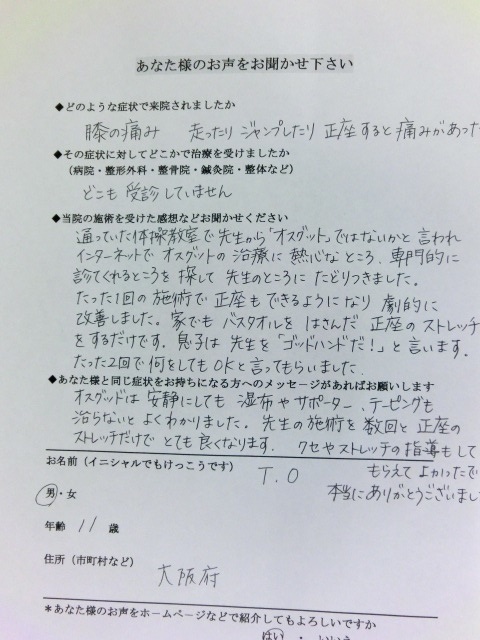 あなた様のお声をお聞かせ下さい
◆どのような症状で来院されましたか
膝の痛み 走ったり ジャンプしたり 正座すると痛みがあった
◆その症状に対してどこかで治療を受けましたか
（病院・整形外科・整骨院・鍼灸院・整体など）
どこも 受診していません
◆当院の施術を受けた感想などお聞かせください
通っていた体操教室で先生から「オスグット」ではないかと言われ
インターネットで オスグットの 治療に 熱心なところ、専門的に
診てくれるところを 探して 先生のところに たどりつきました。
たった1回の 施術で 正座も できるようになり 劇的に
改善しました。家でも バスタオルを はさんだ 正座の ストレッチ
をするだけです。息子は 先生を「ゴッドハンドだ!」と言います.
たった2回で 何をしても OKと言ってもらいました.
◆あなた様と同じ症状をお持ちになる方へのメッセージがあればお願いします
オスグッドは 安静にしても 湿布や サポーター、テーピングも
治らないと よくわかりました。先生の施術を 数回と 正座の
ストレッチだけで とても 良くなります. クセやストレッチの指導もして
もらえて よかったで
本当にありがとうございまし
お名前（イニシャルでもけっこうです） T.O
男・女
年齢 11 歳
住所（市町村など） 大阪府
＊あなた様のお声をホームページなどで紹介してもよろしいですか
はい ・ いいえ